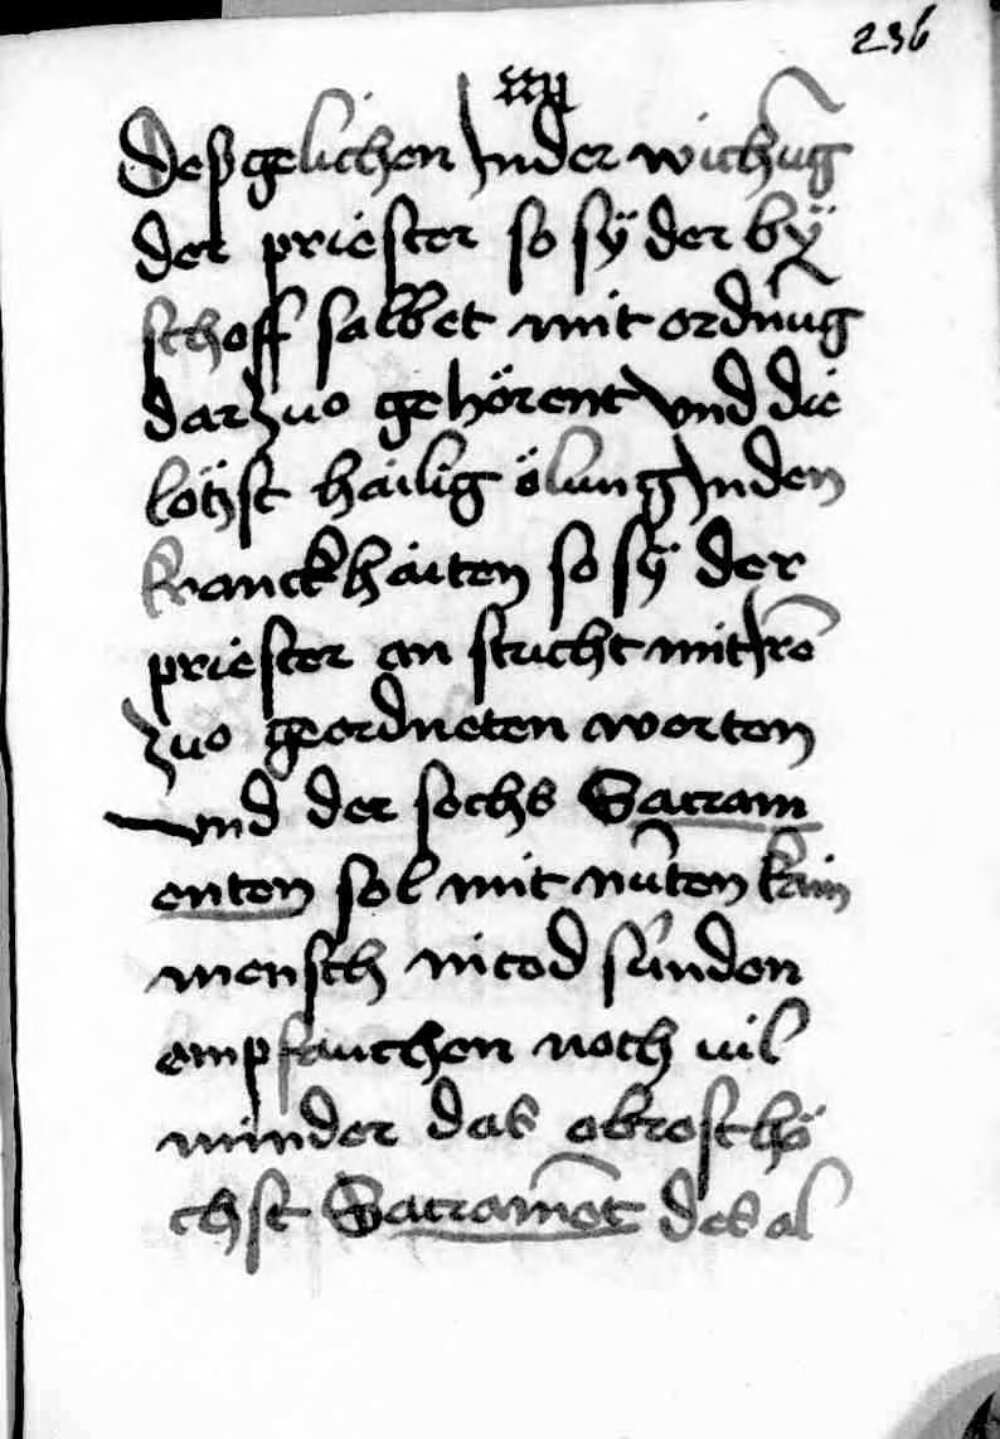 236
Deß gelichen jn der wichu̅g
der priester so sÿ der bÿ
schoff salbet mit ordnu̅g
dar zuo gehörent vnd die
lötzst hailig ölung jn den
kranckhaiten so sÿ der
priester an stricht mit jre̅
zuo geordneten worten
vnd der sechs Sacram
enten sol mit nu̅ten kain
mensch in tod sünden
empfauchen noch uil
minder das obrest hö
chst Sacrame̅t des al